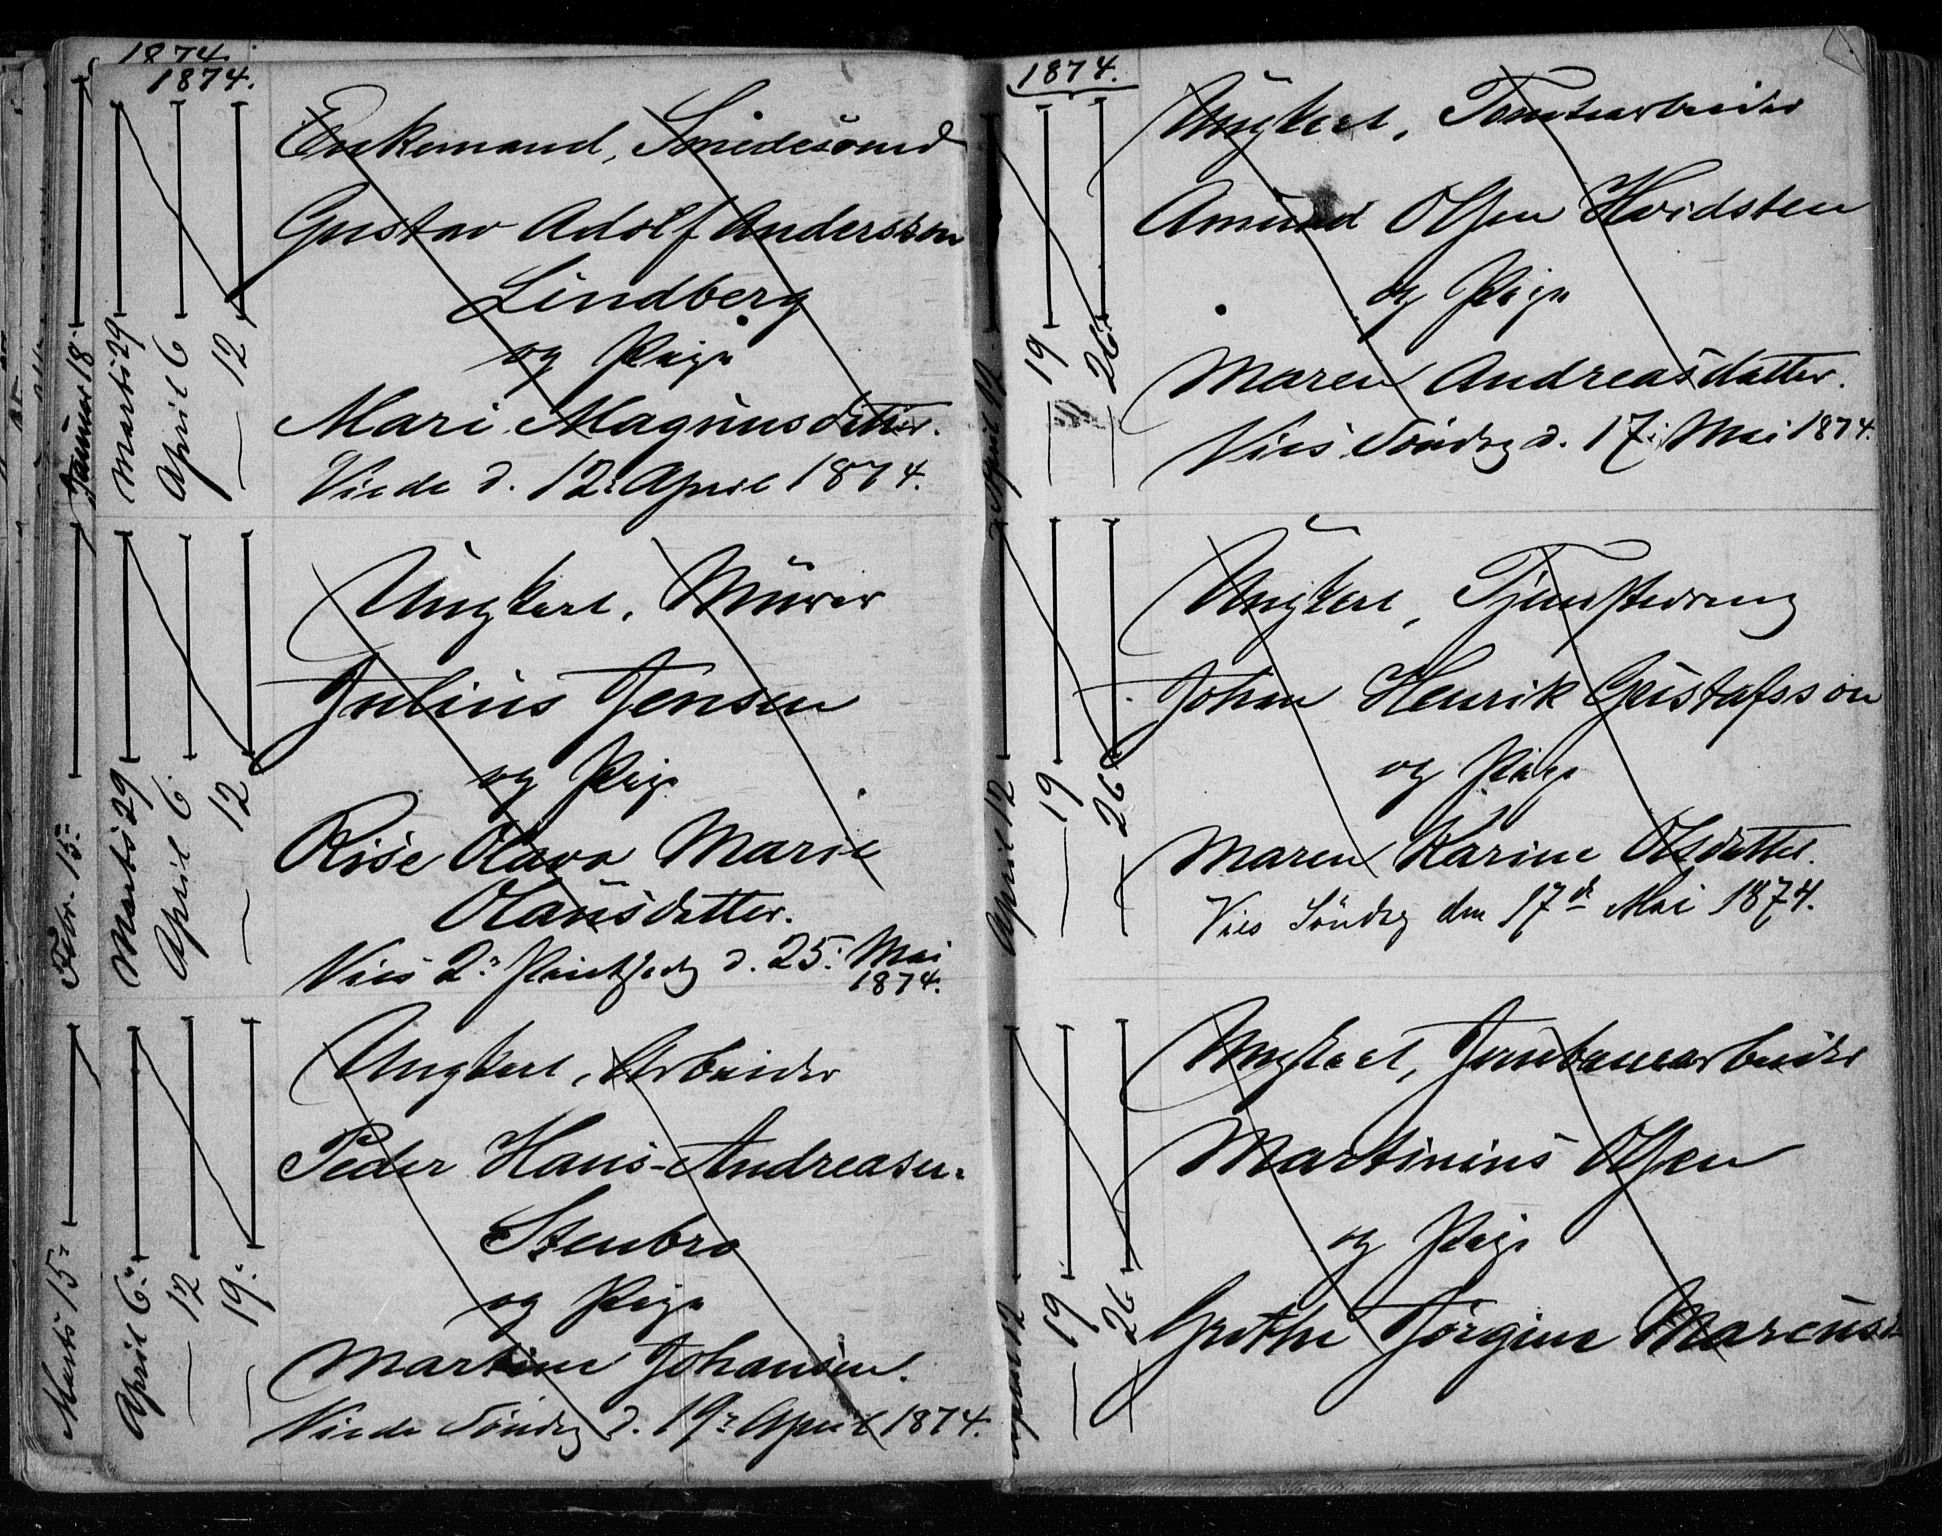 1874.
1874.
Januar 18.
Marts 29
April 6
— 12
Enkemand, Smedesvend
Gustav Adolf Andersson
Lindberg
og Pige
Mari Magnusdatter.
Viede d. 12: April 1874.
Febr. 15:
Marts 29
April 6.
— 12
Ungkarl, Murer
Julius Jensen
og Pige
Olava Marie
Olausdatter.
Vies 2: d. 25: Mai
1874.
Marts 15:
April 6:
— 12
— 19:
Ungkarl, Arbeider
Peder Hans Andreasen
Stenbro
og Pige
Martine Johansen.
Viede Søndag d. 19: April 1874.
1874.
April 12
— 19
— 26
Ungkarl, Tomtearbeider
Amund Olsen Hvidsten
og Pige
Maren Andreasdatter.
Vies Søndag d. 17: Mai 1874.
April 12
— 19
— 26
Ungkarl, Tjenestedreng
Johan Henrik Gustafsson
og Pige
Maren Karine Olsdatter.
Vies Søndag den 17de Mai 1874.
April 12
— 19
— 26
Ungkarl, Jernbanearbeider
Martinius Olsen
og Pige
Grethe Jørgine